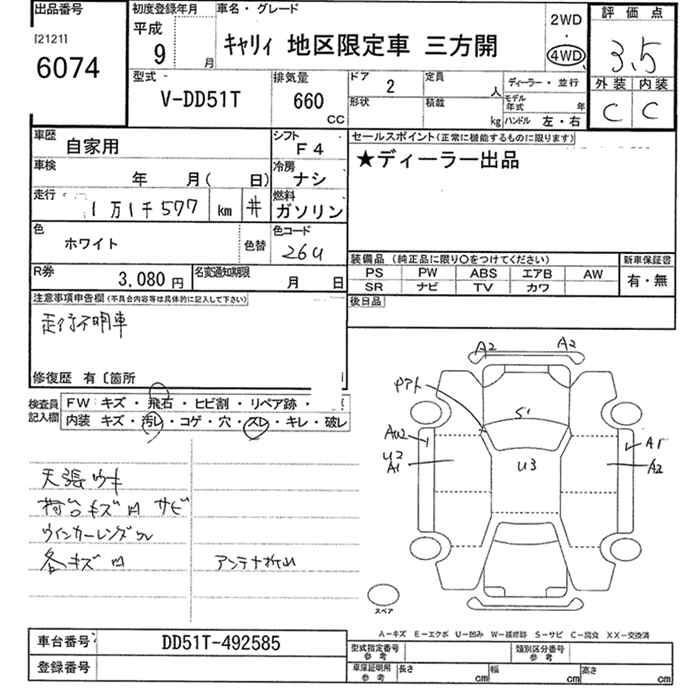 出品番号
[2121]
6074
初度登録年月
平成
9 月
車名・グレード
キャリィ 地区限定車 三方開
2WD
・
4WD
評価点
3.5
外装 内装
C C
型式
V-DD51T
排気量
660
CC
ドア 2
定員 人
ディーラー・並行
形状
積載 kg
モデル年式 年
ハンドル 左・右
車歴 自家用
シフト F4
車検 年 月( 日)
冷房 ナシ
走行 1万1千577 km #
燃料 ガソリン
色 ホワイト
色替
色コード 26U
R券 3,080円
名変通知期限 月 日
セールスポイント(正常に機能するものに限ります)
★ディーラー出品
装備品(純正品に限り〇をつけてください)
PS PW ABS エアB AW
SR ナビ TV カワ
新車保証書
有・無
後日品
注意事項申告欄(不具合内容等は具体的に記入して下さい)
走行不明車
修復歴 有〔箇所
検査員記入欄
FW キズ・飛石・ヒビ割・リペア跡・
内装 キズ・汚レ・コゲ・穴・スレ・キレ・破レ
天張ウキ
荷台キズ凹 サビ
ウインカーレンズ
各キズ凹
アンテナ
A2 A2
S1
AU2
U2
A1
U3
A1
A2
スペア
A-キズ E-エクボ U-凹み W-補修跡 S-サビ C-腐食 XX-交換済
車台番号 DD51T-492585
登録番号
型式指定番号 参考
類別区分番号 参考
車庫証明用 参考
長さ cm
幅 cm
高さ cm